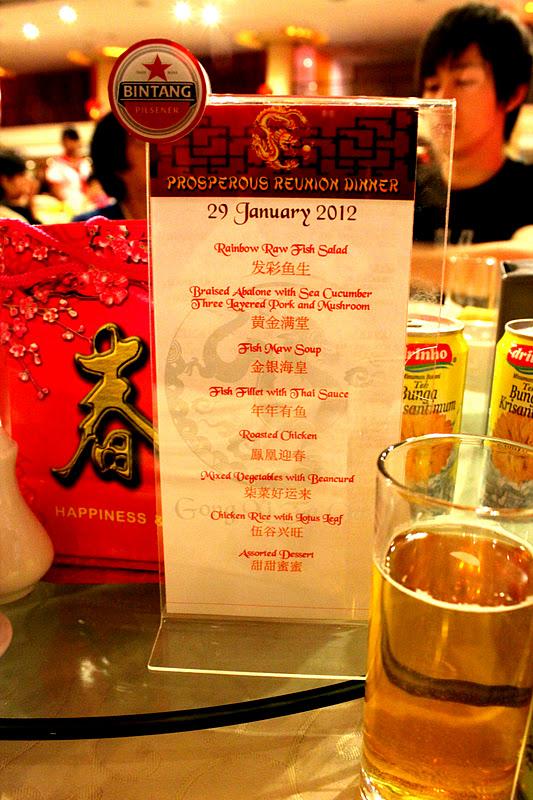 BINTANG
PILSENER
PROSPEROUS REUNION DINNER
29 January 2012
Rainbow Raw Fish Salad
发彩鱼生
Braised Abalone with Sea Cucumber
Three Layered Pork and Mushroom
黄金满堂
Fish Maw Soup
金银海皇
Fish Fillet with Thai Sauce
年年有鱼
Roasted Chicken
鳳凰迎春
Mixed Vegetables with Beancurd
柒菜好运来
Chicken Rice with Lotus Leaf
伍谷兴旺
Assorted Dessert
甜甜蜜蜜
Gong
春
HAPPINESS &
drinho
Minuman Bunga
Teh
Bunga
Krisantimum
drin
Teh
Bung
Krisant